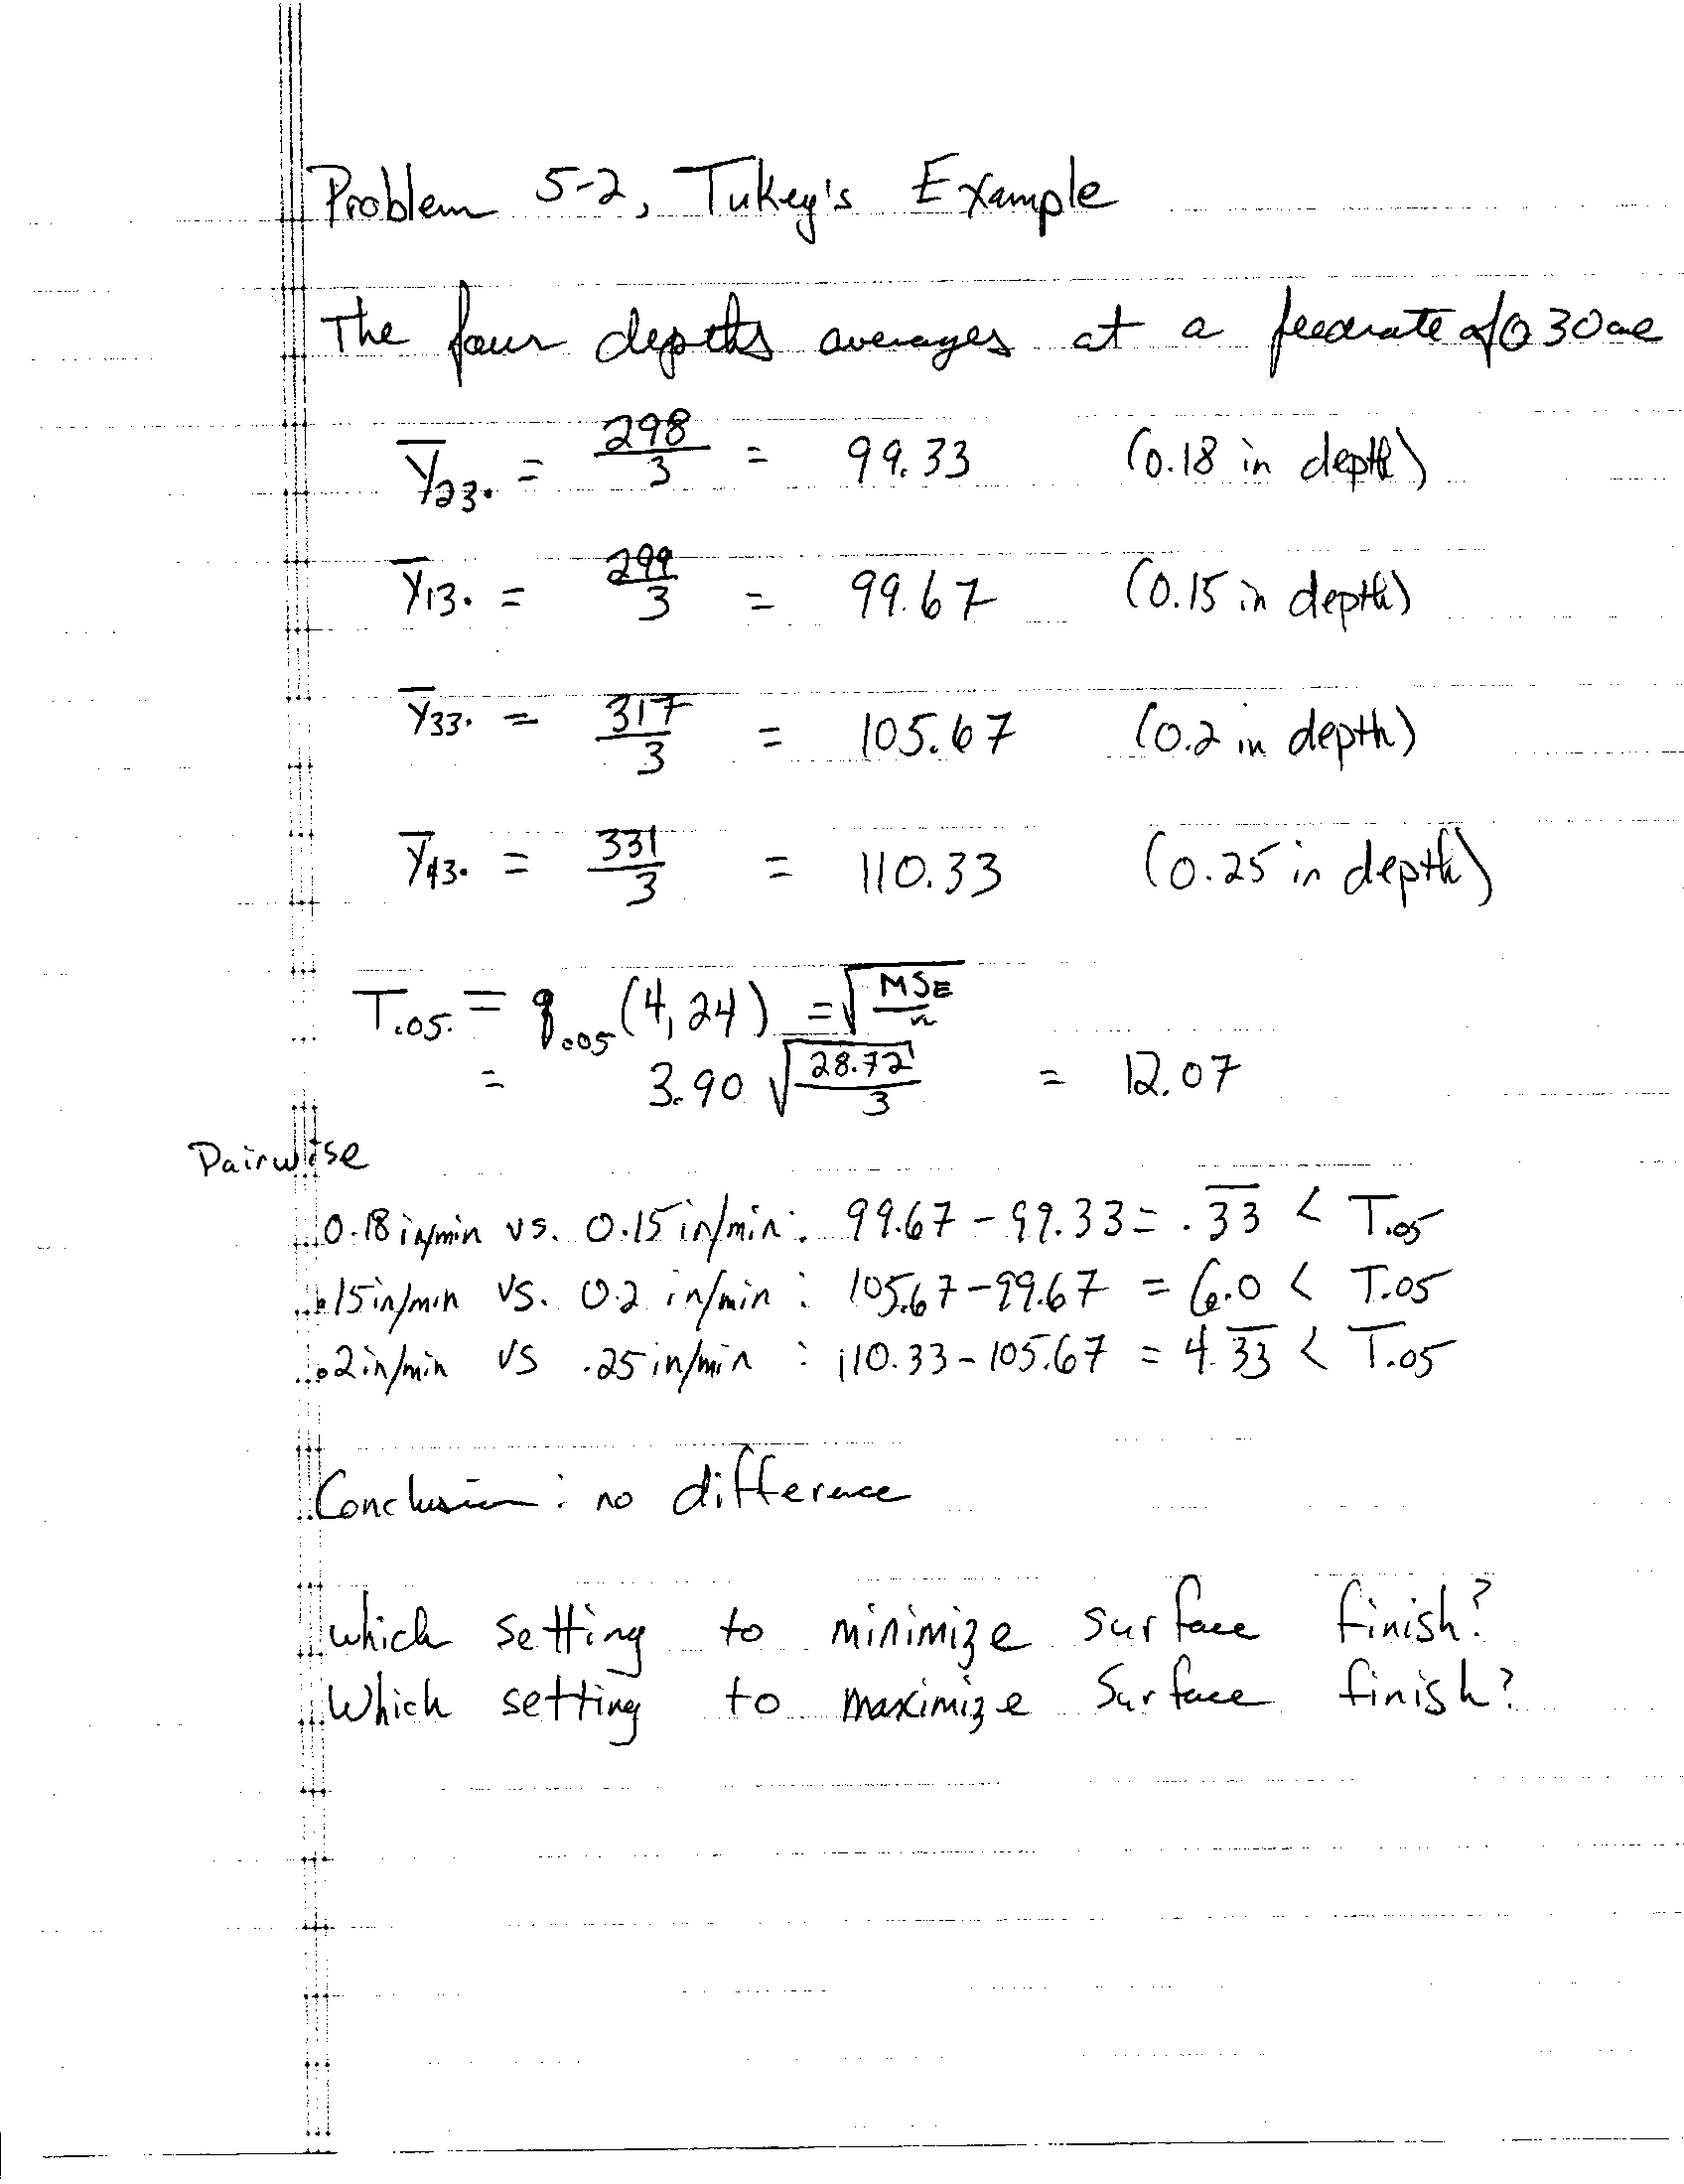 Problem 5-2, Tukey's Example
The four depths averages at a feedrate of 0 30 are
Y̅23. = 298/3 = 99.33 (0.18 in depth)
Y̅13. = 299/3 = 99.67 (0.15 in depth)
Y̅33. = 317/3 = 105.67 (0.2 in depth)
Y̅43. = 331/3 = 110.33 (0.25 in depth)
T.05. = q.05 (4, 24) = √(MSE/n)
= 3.90 √(28.72/3) = 12.07
Pairwise
0.18 in/min vs. 0.15 in/min: 99.67 - 99.33 = .3̅3̅ < T.05
.15 in/min vs. 0.2 in/min : 105.67 - 99.67 = 6.0 < T.05
.2 in/min vs .25 in/min : 110.33 - 105.67 = 4.3̅3̅ < T.05
Conclusion : no difference
which setting to minimize surface finish?
Which setting to maximize Surface finish?